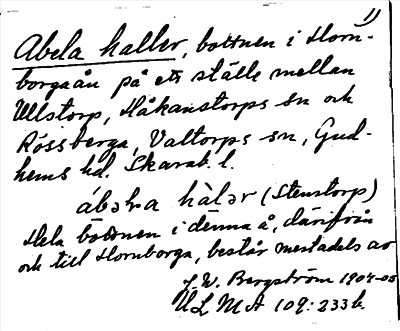 11
Abela haller, bottnen i Horn-
borgaån på ett ställe mellan
Ullstorp, Håkanstorps sn och
Rössberga, Valtorps sn, Gud-
hems hd. Skarab. l.
hàlər (Stenstorp)
Hela bottnen i denna å, därifrån
och till Hornborga, består mestadels av
J. W. Bergström 1904-05
ULMA 109:233 b.